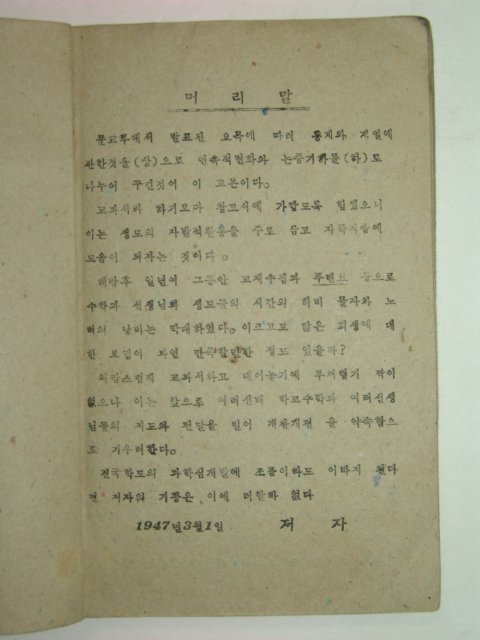 머 리 말
문교부에서 발표된 요목에 따러 통계와 계열에
관한것을 (상)으로 연속적변화와 논증기하를 (하)로
나누어 꾸민것이 이 교본이다。
교과서라 하기보다 참고서에 가깝도록 힘썼으니
이는 생도의 자발적활동을 주로 삼고 자학자습에
도움이 되자는 것이다。
해방후 일년여 그동안 교재수집과 푸린트 등으로
수학과 선생님과 생도들의 시간의 허비 물자와 노
력의 낭비는 막대하였다。 이크고도 많은 희생에 대
한 보답이 과연 만족할만한 정도 있을까?
외람스럽게 교과서라고 내어놓기에 부끄럽기 짝이
없으나 이는 앞으로 여러선배 학교수학과 여러선생
님들의 지도와 편달을 빌어 개찬개편 을 약속함으
로 기우려한다。
전국학도의 과학심개발에 조금이라도 이바지 된다
면 저자의 기쁨은 이에 더할바 없다
1947년3월1일 저 자